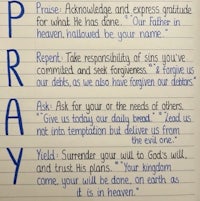 P Praise: Acknowledge and express gratitude
for what He has done. "Our Father in
heaven, hallowed be your name."
R Repent: Take responsibility of sins you've
commited and seek forgiveness. "& forgive us
our debts, as we also have forgiven our debtors."
A Ask: Ask for your or the needs of others.
"Give us today our daily bread." "Lead us
not into temptation but deliver us from
the evil one."
Y Yield: Surrender your will to God's will,
and trust His plans. "Your kingdom
come, your will be done, on earth as
it is in heaven."